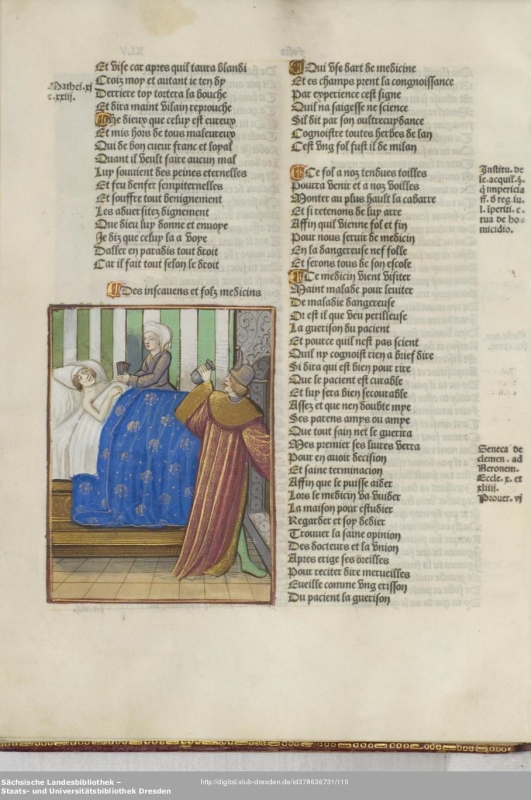 Et vise car apres quil taura blandi
Croiz moy et autant ie ten dy
Derriere toy tortera la bouche
Et dira maint vilain reprouche
Mathei. xi
r. xxiij.
He dieux que celuy est eureux
Et mis hors de tous maleureux
Qui de bon cueur franc et loyal
Quant il veult faire aucun mal
Luy souvient des peines eternelles
Et feu denfer sempiternelles
Et souffre tout benignement
Les adversitez dignement
Que dieu luy donne et envoye
Je diz que celuy la a voye
Daller en paradis tout droit
Car il fait tout selon le droit
Des inscavens et folz medicins
Qui vse dart de medicine
Et es champs prent la congnoissance
Par experience cest signe
Quil na saigesse ne science
Sil dit par son oultrecuydance
Cognoistre toutes herbes de lan
Cest vng fol fust il de milan
Ce fol a noz tendues toilles
Pourra venir et a noz voilles
Monter au plus hault la cabarre
Et si retenons de luy arre
Affin quil vienne fol et fin
Pour nous seruir de medicin
En la dangereuse nef folle
Et serons tous de son escole
Institu. de
le. acquil. §.
q impericia
ff. d reg. iu.
l. iperiti. c.
tua de ho-
micidio.
Ce medicin vient visiter
Maint malade pour leuiter
De maladie dangereuse
Or est il que veu perilleuse
La guerison du pacient
Et pource quil nest pas scient
Quil ny cognoist rien a brief dire
Si dira qui est bien pour rire
Que le pacient est curable
Et luy sera bien secourable
Assez et que nen doubte mye
Ses parens amys ou amye
Que tout sain net le guerira
Mes premier ses liures verra
Pour en auoir decision
Et saine terminacion
Affin que se puisse aider
Lors le medicin va vuider
La maison pour estudier
Regarder et soy dedier
Trouuer la saine opinion
Des docteurs et la vnion
Apres erige ses oreilles
Pour reciter dire merueilles
Eueille comme vng erisson
Du pacient la guerison
Seneca de
clemen. ad
Neronem.
Eccle. x. et
xliiij.
Prouer. vj
Sächsische Landesbibliothek –
Staats- und Universitätsbibliothek Dresden
http://digital.slub-dresden.de/id378636731/110